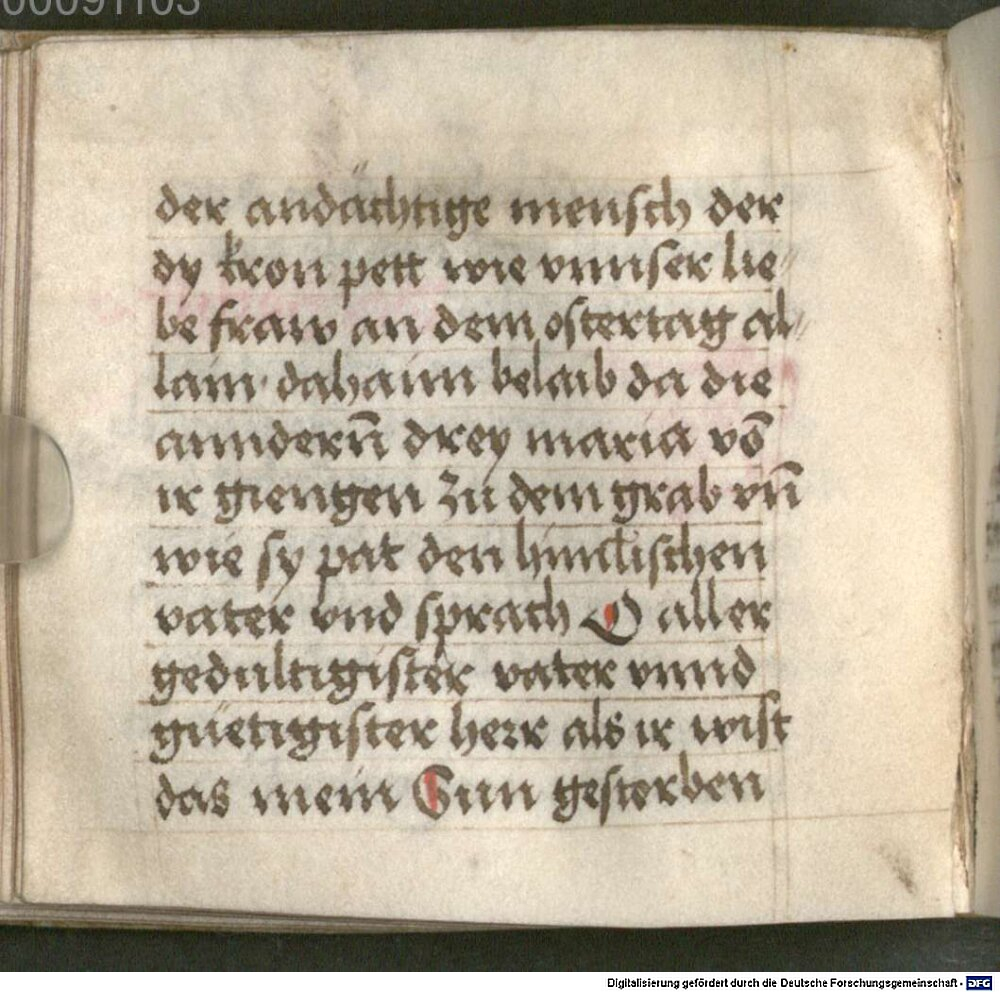 00091103
der andächtige mensch der
dy kron pett wie vnnser lie-
be fraw an dem ostertag al-
lain dahaim belaib da die
annderñ drey maria võ
ir giengen zu dem grab vñ
wie sy pat den himlischen
vater vnd sprach O aller
gedultigister vater vnnd
güetigister herr als ir wist
das mein Sun gestorben
Digitalisierung gefördert durch die Deutsche Forschungsgemeinschaft - DFG